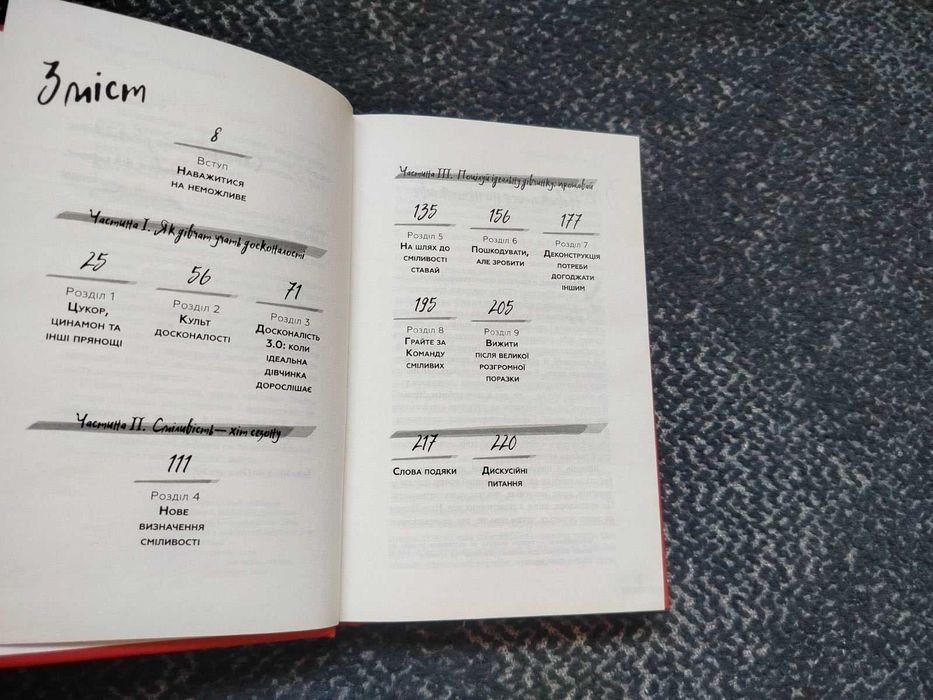 Зміст
8
Вступ
Наважитися
на неможливе
Частина I. Як дівчат учать досконалості
25
Розділ 1
Цукор,
цинамон та
інші прянощі
56
Розділ 2
Культ
досконалості
71
Розділ 3
Досконалість
3.0: коли
ідеальна
дівчинка
дорослішає
Частина II. Сміливість — хіт сезону
111
Розділ 4
Нове
визначення
сміливості
Частина III. Поцілуй ідеальну дівчинку: прощавай
135
Розділ 5
На шлях до
сміливості
ставай
156
Розділ 6
Пошкодувати,
але зробити
177
Розділ 7
Деконструкція
потреби
догоджати
іншим
195
Розділ 8
Грайте за
Команду
сміливих
205
Розділ 9
Вижити
після великої
розгромної
поразки
217
Слова подяки
220
Дискусійні
питання